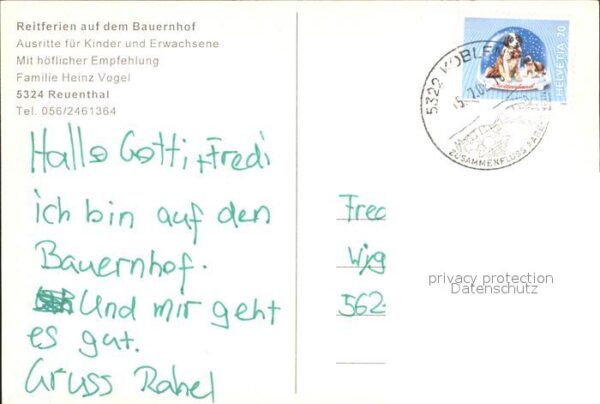 Reitferien auf dem Bauernhof
Ausritte für Kinder und Erwachsene
Mit höflicher Empfehlung
Familie Heinz Vogel
5324 Reuenthal
Tel. 056/2461364
Hallo Gotti + Fredi
ich bin auf den
Bauernhof.
Und mir geht
es gut.
Gruss Rahel
5322 KOBLENZ
ZUSAMMENFLUSS AARE
HELVETIA 70
Fred
Wyg
562
privacy protection
Datenschutz